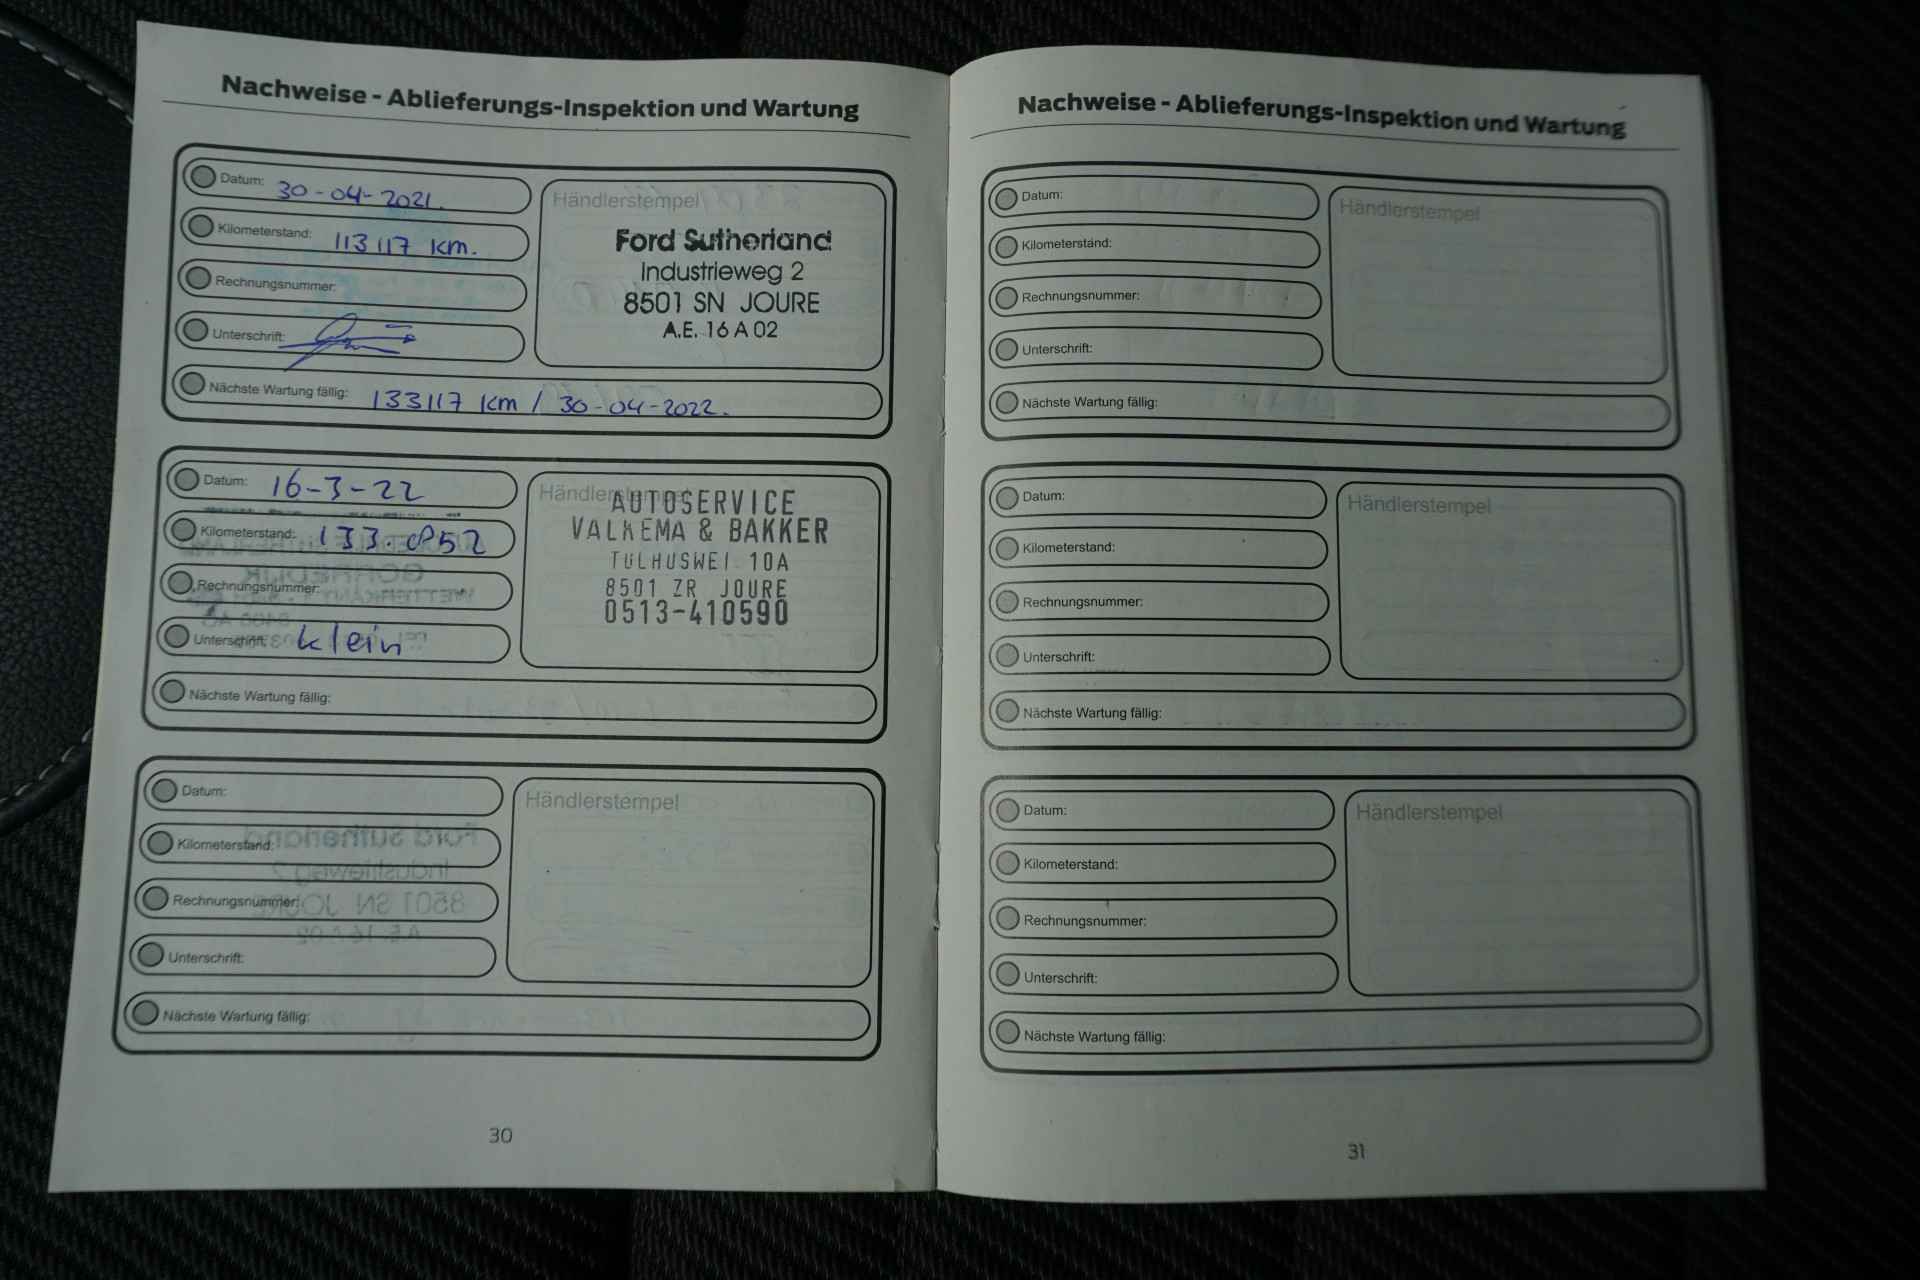 Nachweise - Ablieferungs-Inspektion und Wartung
Datum: 30-04-2021.
Kilometerstand: 113117 km.
Rechnungsnummer:
Unterschrift:
Händlerstempel
Ford Sutherland
Industrieweg 2
8501 SN JOURE
A.E. 16 A 02
Nächste Wartung fällig: 133117 km / 30-04-2022.
Datum: 16-3-22
Kilometerstand: 133.852
Rechnungsnummer:
Unterschrift: klein
Händlerstempel
AUTOSERVICE
VALKEMA & BAKKER
TOLHUSWEI 10A
8501 ZR JOURE
0513-410590
Nächste Wartung fällig:
Datum:
Kilometerstand:
Rechnungsnummer:
Unterschrift:
Händlerstempel
Nächste Wartung fällig:
30
Nachweise - Ablieferungs-Inspektion und Wartung
Datum:
Kilometerstand:
Rechnungsnummer:
Unterschrift:
Händlerstempel
Nächste Wartung fällig:
Datum:
Kilometerstand:
Rechnungsnummer:
Unterschrift:
Händlerstempel
Nächste Wartung fällig:
Datum:
Kilometerstand:
Rechnungsnummer:
Unterschrift:
Händlerstempel
Nächste Wartung fällig:
31